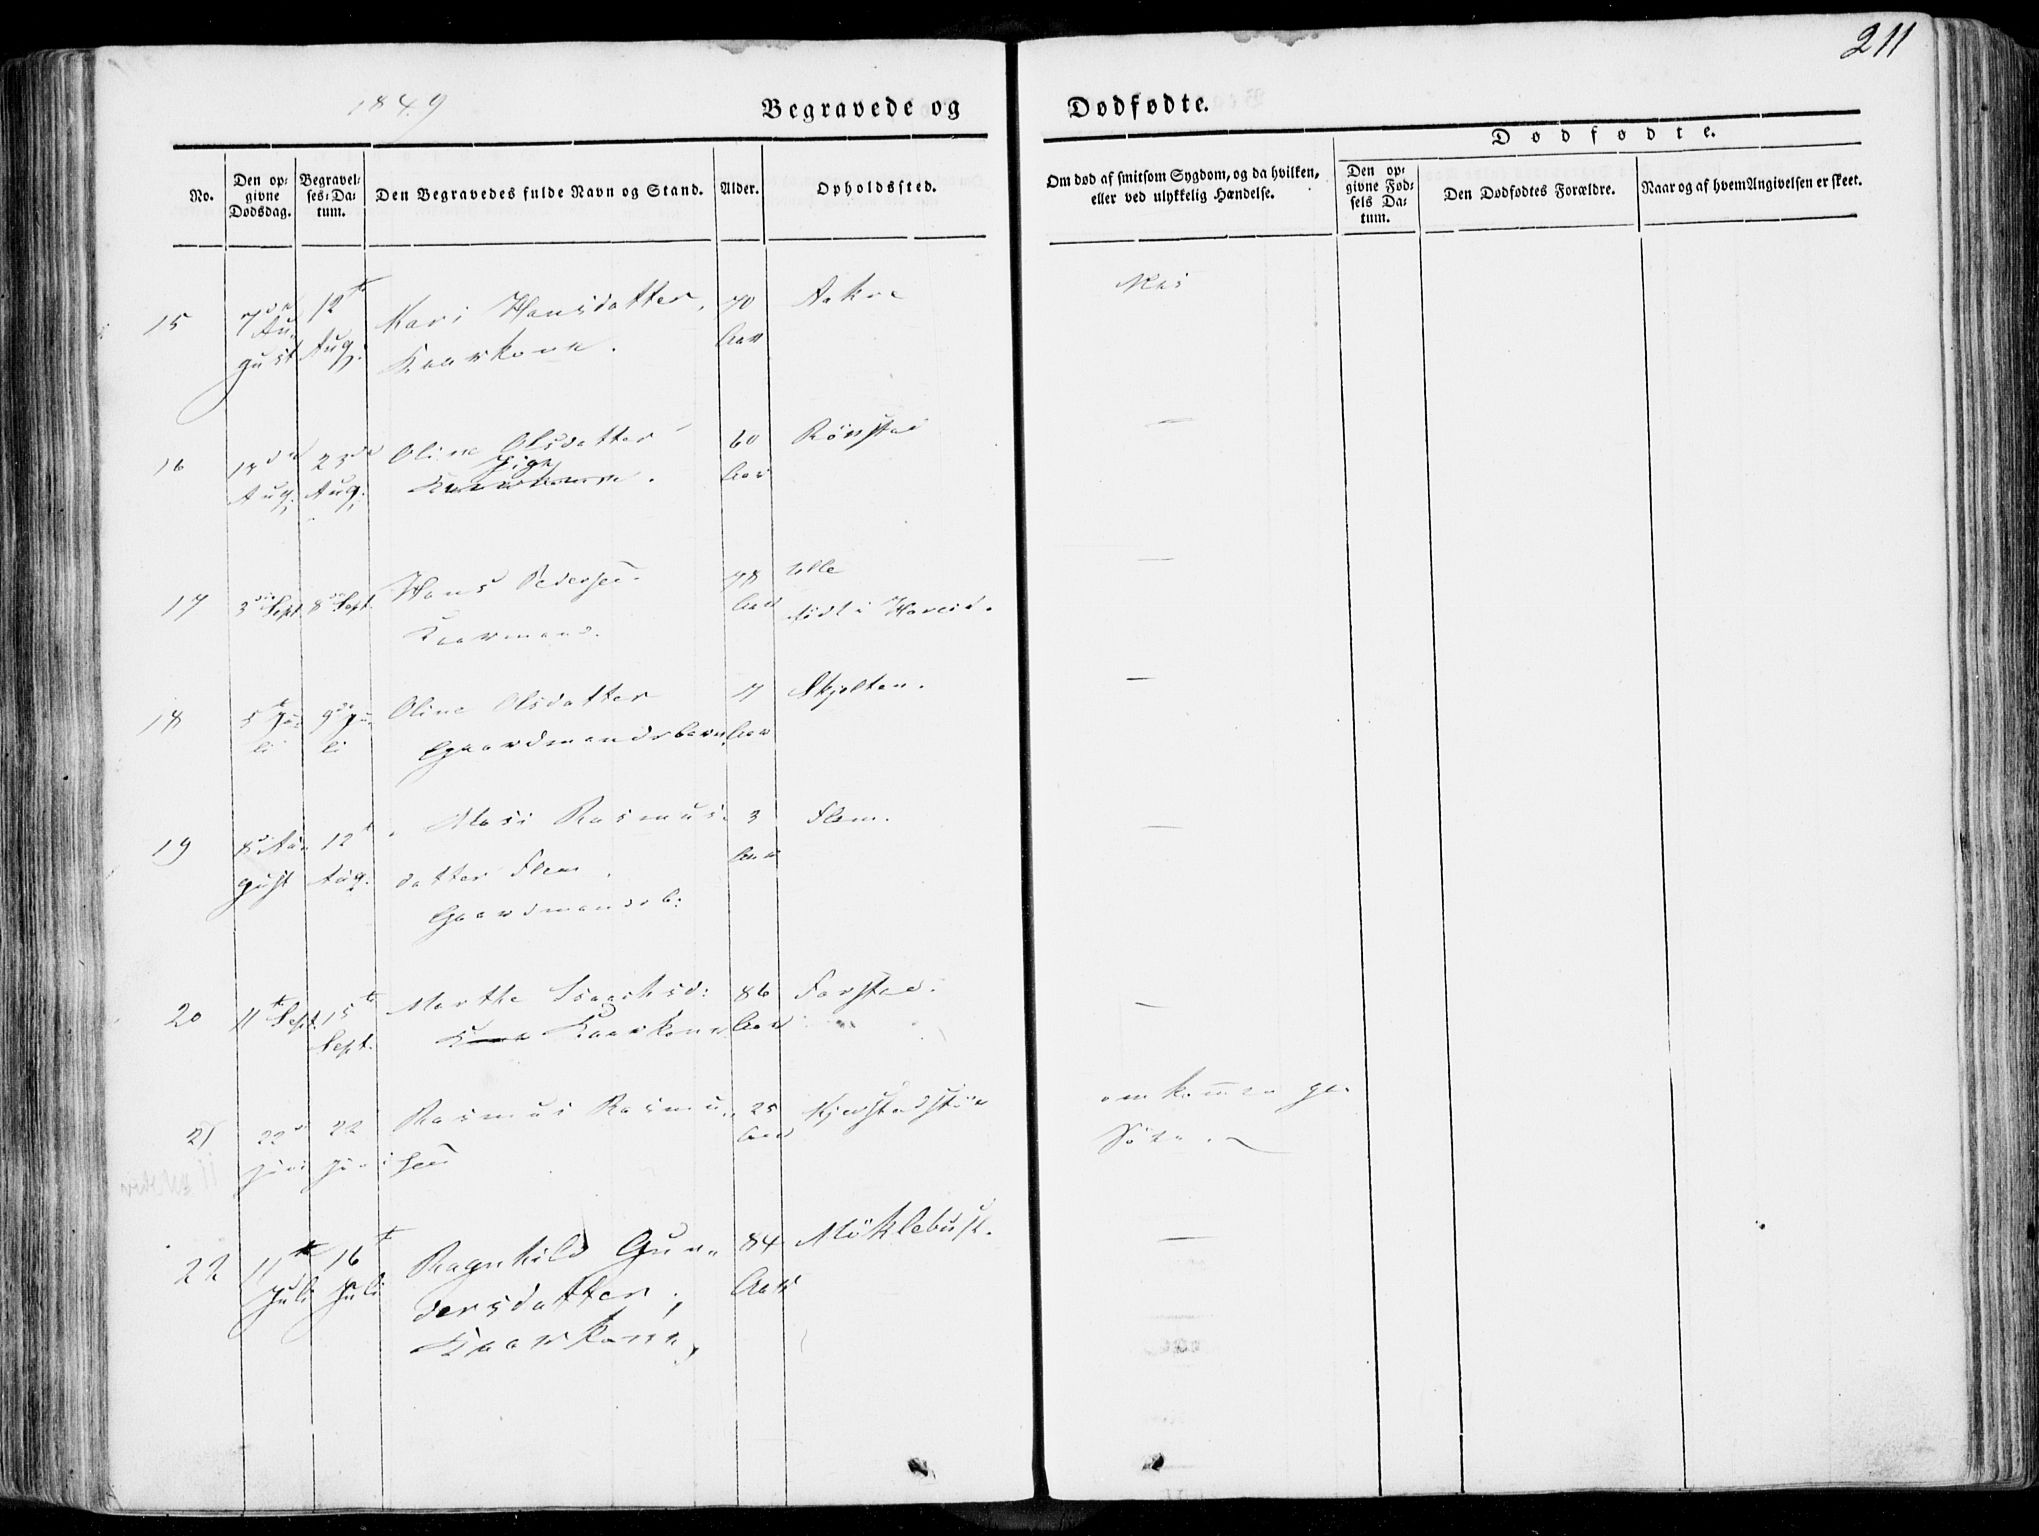 211
1849
Begravede og Dødfødte.
Dødfødte.
No.
Den opgivne Dødsdag.
Begravelses-Datum.
Den Begravedes fulde Navn og Stand.
Alder.
Opholdssted.
Om død af smitsom Sygdom, og da hvilken, eller ved ulykkelig Hændelse.
Den opgivne Fødsels Datum.
Den Dødfødtes Forældre.
Naar og af hvem Angivelsen er skeet.
15 7de 12te Kari Hansdatter, 70 Aakre Nei
August Aug. Kaarkone. Aar
16 18de 23de Oline Olsdatter 60 Rönstad —
Aug. Aug. Pige Aar
17 3die Sept. 8de Sept. Hans Pedersen 78 Ulle —
Kaarmand. Aar födt i Hareid.
18 5te Ju- 9de Ju- Oline Olsdatter Skjelten. —
li li Gaardmandsbarn Aar
19 8de Au- 12te Rasmus- 3 Flem. —
gust Aug. datter Flem. Aar
Gaardmandsb:
20 11te Sept. 15te Marthe Isachsd: 86 Farstad. —
Sept. Kaarkone Aar
21 22de 22 Rasmus Rasmu- 25 omkommen paa
Juni Juni sen Aar Söen.
22 11te 16te Ragnhild Gun- 84 Möklebust. —
Juli Juli dersdatter, Aar
Kaarkone,